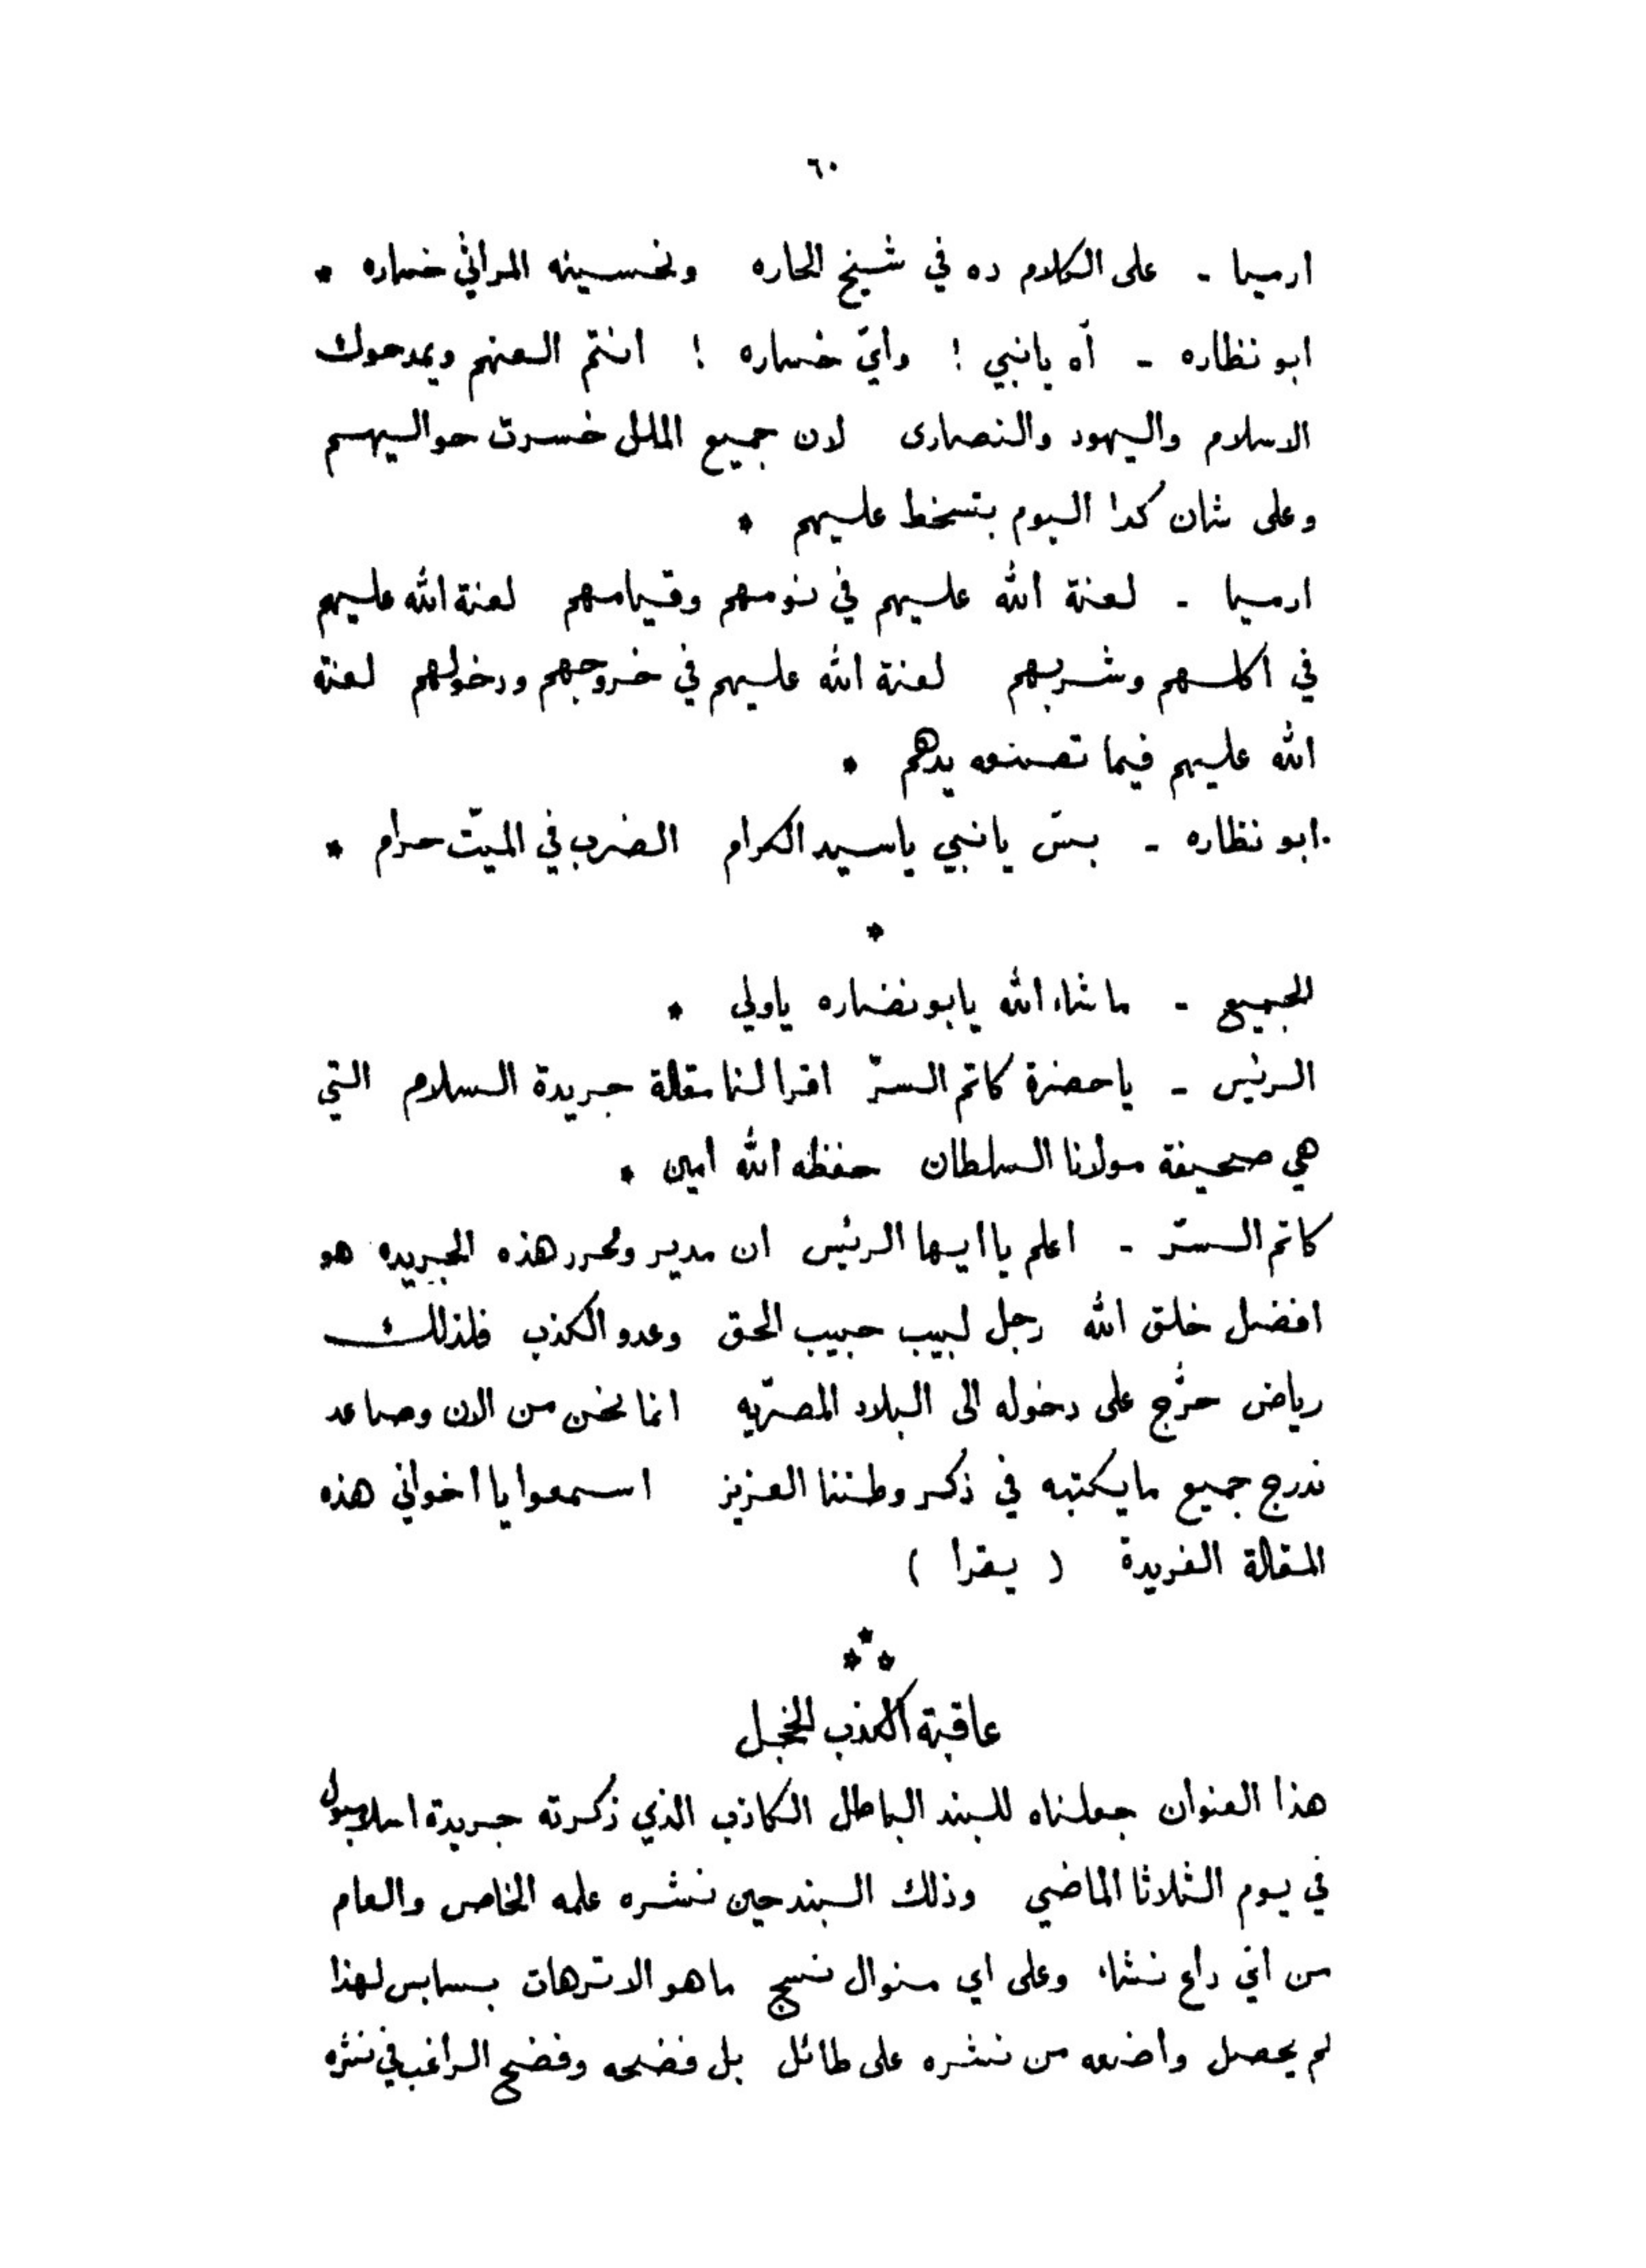 ٦٠
ارميا - على الكلام ده في شيخ الحاره ونخسينه المراثي خساره *
ابو نظاره - آه يانبي ! وايّ خساره ! انتم العنهم ويمدحوك
الاسلام واليهود والنصارى لان جميع الملل خسرت حواليهم
وعلى شان كدا اليوم بتسخط عليهم *
ارميا - لعنة الله عليهم في نومهم وقيامهم لعنة الله عليهم
في اكلهم وشربهم لعنة الله عليهم في خروجهم ودخولهم لعنة
الله عليهم فيما تصنعه يدهم *
ابو نظاره - بسّ يانبي ياسيد الكرام الضرب في الميّت حرام *
*
الجميع - ماشاء الله يابو نضاره ياولي *
الرئيس - ياحضرة كاتم السرّ اقرا لنا مقالة جريدة السلام التي
هي صحيفة مولانا السلطان حفظه الله امين *
كاتم السرّ - اعلم يا ايها الرئيس ان مدير ومحرر هذه الجريده هو
افضل خلق الله رجل لبيب حبيب الحق وعدو الكذب فلذلك
رياض حرّج على دخوله الى البلاد المصريّه انما نحن من الان وصاعد
ندرج جميع مايكتبه في ذكر وطننا العزيز اسمعوا يا اخواني هذه
المقالة الفريدة ( يقرا )
***
عاقبة الكذب الخجل
هذا العنوان جعلناه للبند الباطل الكاذب الذي ذكرته جريدة اسلامبول
في يوم الثلاثا الماضي وذلك البند حين نشره علمه الخاص والعام
من ايّ داع نشاء وعلى اي منوال نسج ماهو الا ترهات بسابس لهذا
لم يحصل واضعه من نشره على طائل بل فضحه وفضح الراغب في نشره